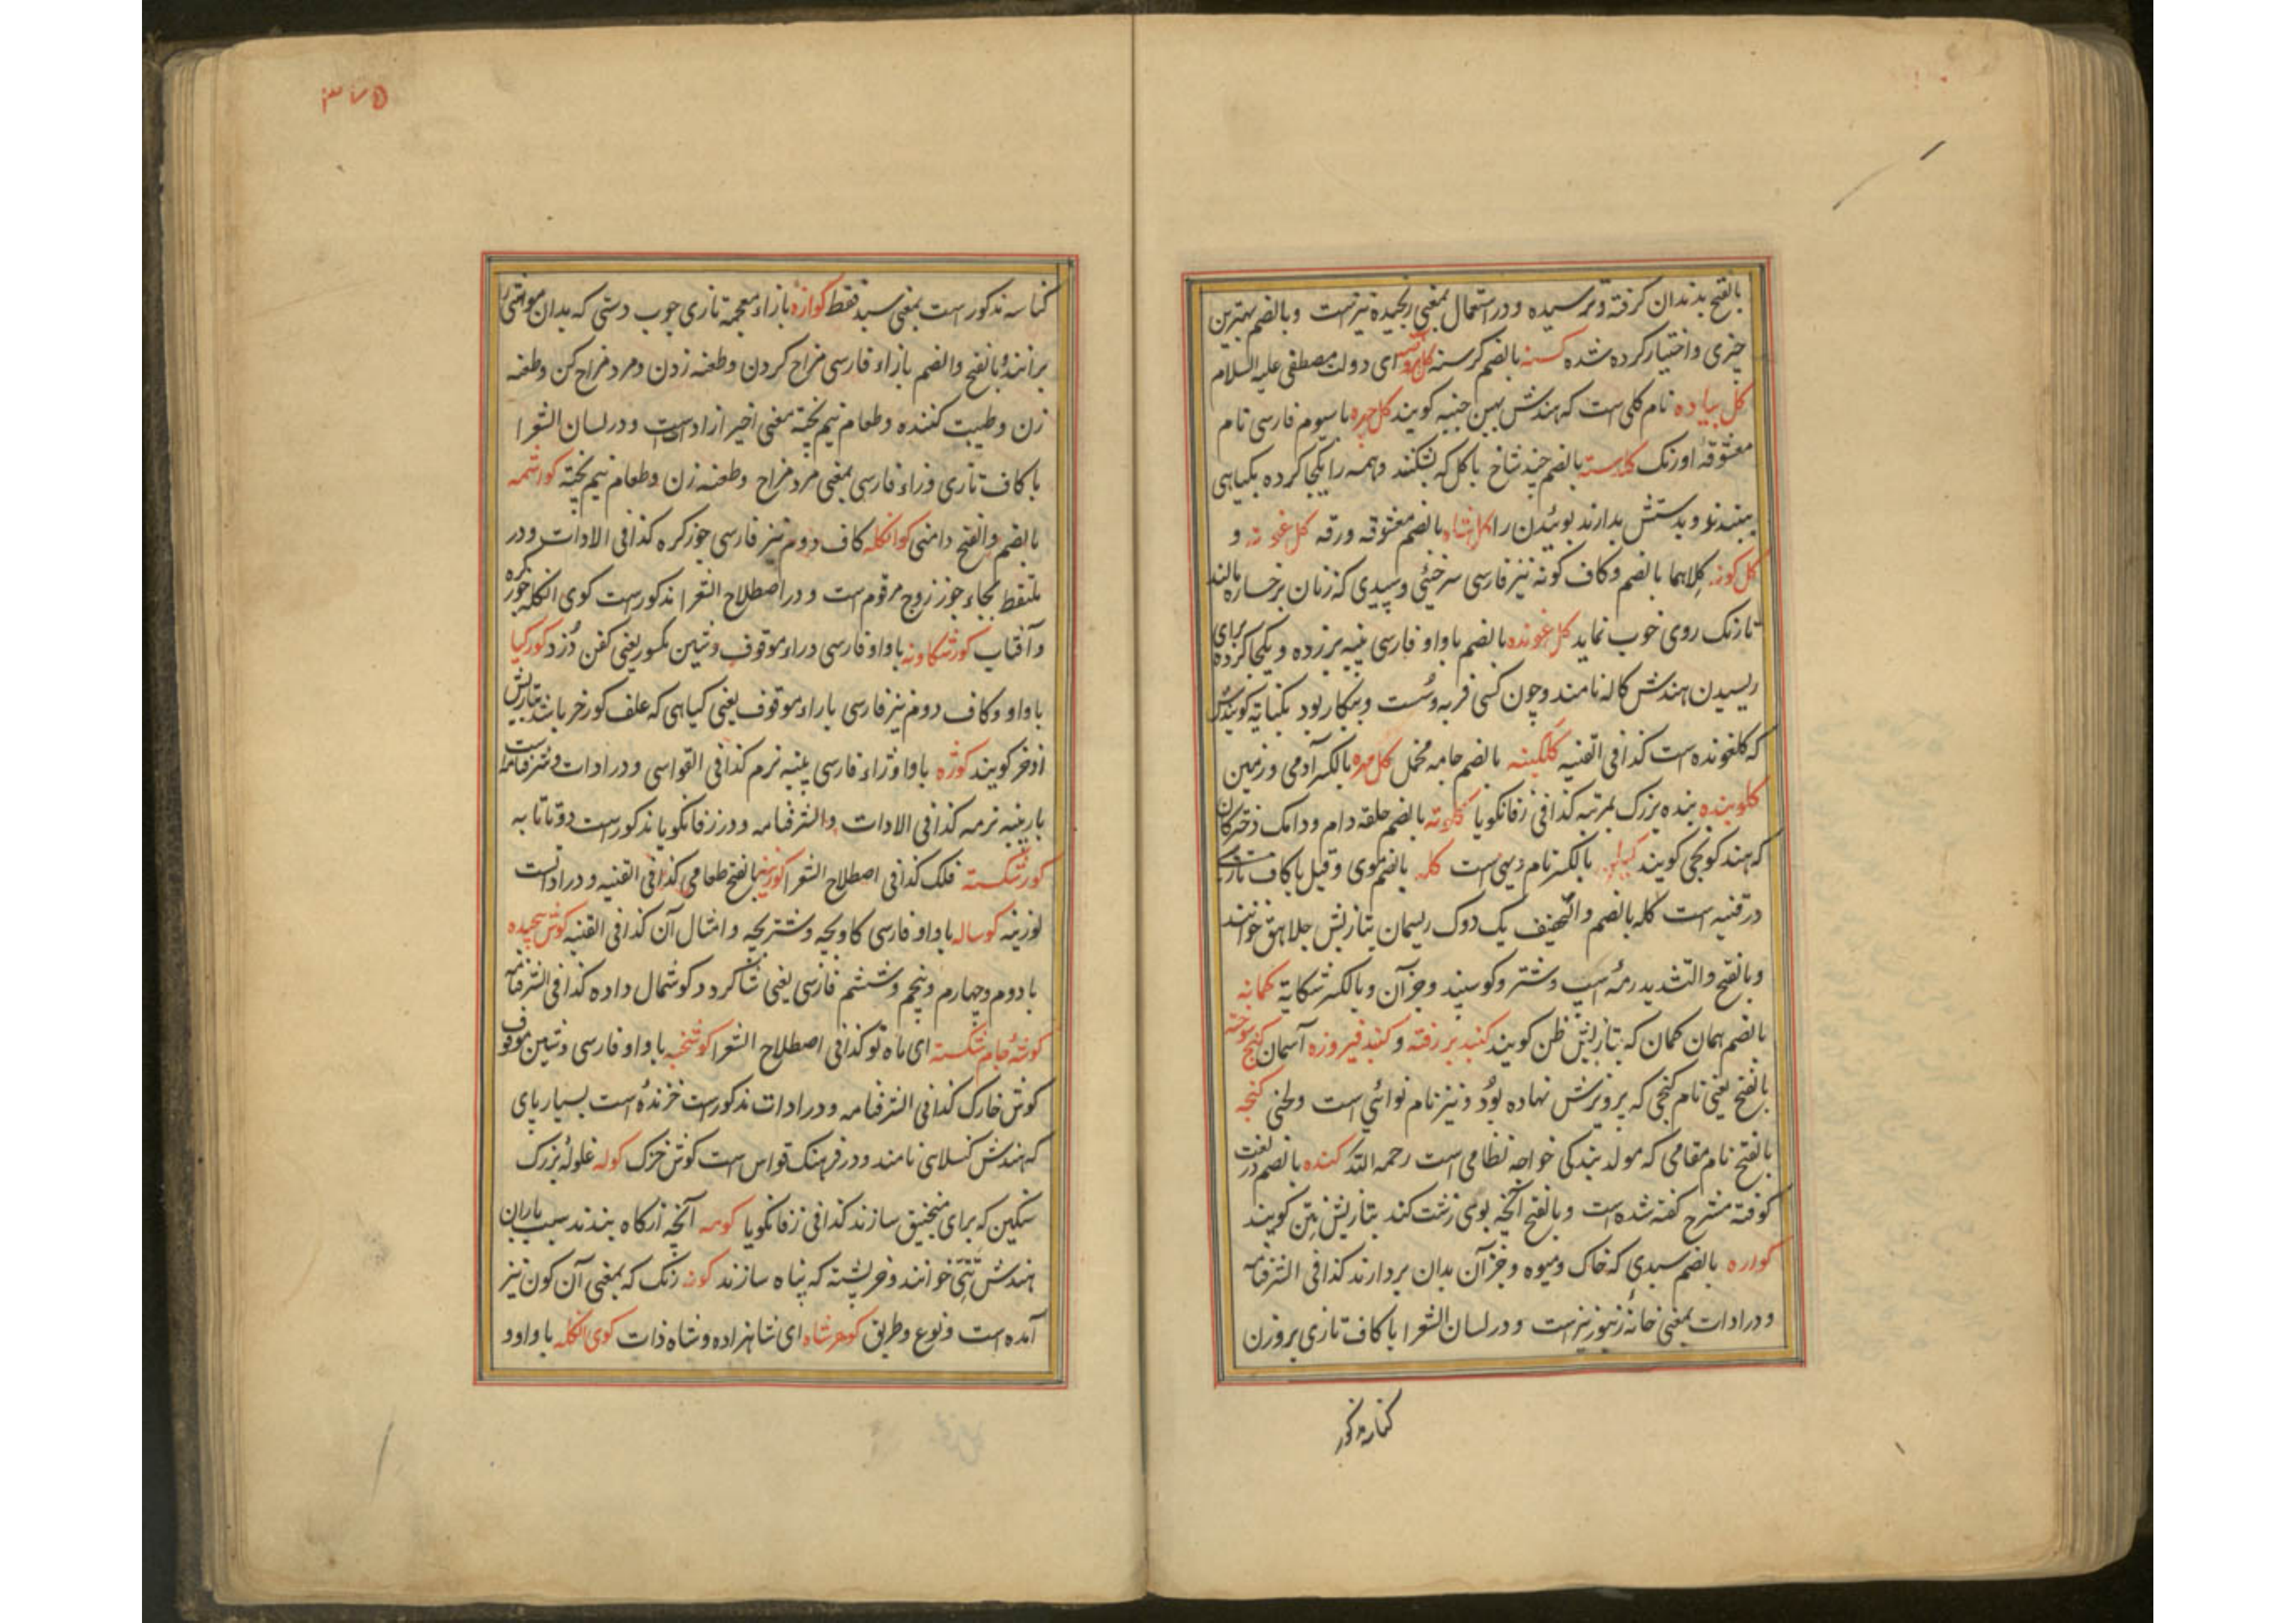 بالفتح بدندان گرفته و ترسیده و در استعمال بمعنی رنجیده نیز است و بالضم بهترین
چیزی و اختیار کرده شده کسنه بالضم گرسنه ای دولت مصطفی علیه السلام
کل پیاده نام کلی است که هندش بهین جنبه کویند کل چهره با سیوم فارسی نام
معشوقه اورنک کلدسته بالضم چند شاخ با کل که بشکنند و همه را یکجا کرده بکیاهی
ببندند و بدستش بدارند بوئیدن را کلشاه بالضم معشوقه ورقه کل غونه و
کل کونه کلاهما بالضم و کاف کونه نیز فارسی سرخئی و سپیدی که زنان بر خساره مالند
تا رنک روی خوب نماید کل غونده بالضم با واو فارسی پنبه بر زده و یکجا کرده برای
ریسیدن هندش کاله نامند و چون کسی فربه و سست و بیکار بود بکنایه کویندش
که کلغونده است کذا فی القنیه کلکینه بالضم جامه مخمل کل مهره بالکسر آدمی و زمین
کلوبنده بنده بزرک بمرتبه کذا فی زفانکویا کلوته بالضم حلقه دام و دامک دخترکان
که هند کونجی کویند بالکسر نام دیهی است کله بالضم موی و قیل با کاف تازی
در قنیه است کله بالضم و التخفیف یک دوک ریسمان بتازیش جلاهق خوانند
و بالفتح والتشدید رمه اسپ و شتر و کوسپند و جز آن و بالکسر شکایة کمانه
بالضم همان کمان که بتازیش ظن کویند کنبد بر رفته و کنبد فیروزه آسمان کنج سوخته
بالفتح یعنی نام کنجی که پرویزش نهاده بود و نیز نام نوائی است و لحنی کنجه
بالفتح نام مقامی که مولد بندکی خواجه نظامی است رحمه الله کنده بالضم در لغت
کوفته مشرح کفته شده است و بالفتح آنچه بوی زشت کند بتازیش نتن کویند
کواره بالضم سبدی که خاک و میوه و جز آن بدان بردارند کذا فی الشرفنامه
و در ادات بمعنی خانه زنبور نیز است و در لسان الشعرا با کاف تازی بر وزن
کناسه مذکور
۳۷۵
کناسه مذکور است بمعنی سبد فقط کوازه بازاء معجمه تازی چوب دستی که بدان مواشی را
برانند و بالفتح والضم بازاء فارسی مزاح کردن و طعنه زدن و مرد مزاح کن و طعنه
زن و طیبت کننده و طعام نیم پخته معنی اخیر از ادات است و در لسان الشعرا
با کاف تازی و زاء فارسی بمعنی مرد مزاح و طعنه زن و طعام نیم پخته کورشمه
بالضم والفتح دامنی کوانکله کاف دوم نیز فارسی جوزکره کذا فی الادات و در
ملتقط بجاء جوز زوج مرقوم است و در اصطلاح الشعرا مذکور است کوی انکله جوز کره
و آفتاب کورشکاونه با واو فارسی و راء موقوف و شین مکسور یعنی کفن دزد کورکیا
با واو و کاف دوم نیز فارسی با راء موقوف یعنی کیاهی که علف کورخر باشد بتازیش
اذخر کویند کوزه با واو و زاء فارسی پنبه نرم کذا فی القواسی و در ادات و شرفنامه است
بار پنبه نرمه کذا فی الادات والشرفنامه و در زفانکویا مذکور است دوتا تا به
کوزشکسته فلک کذا فی اصطلاح الشعرا کوزینه بالفتح طعامی کذا فی القنیه و در ادات است
لوزینه کوساله با واو فارسی کاوبچه و شتربچه و امثال آن کذا فی القنیه کوش پیچیده
با دوم و چهارم و پنجم و ششم فارسی یعنی شاکرد و کوشمال داده کذا فی الشرفنامه
کوشهٔ جام شکسته ای ماه نو کذا فی اصطلاح الشعرا کوشخبه با واو فارسی و شین موقوف
کوش خارک کذا فی الشرفنامه و در ادات مذکور است خزندهٔ است بسیار پای
که هندش کنسلای نامند و در فرهنک قواس است کوش خزک کوله غلوله بزرک
سنکین که برای منجنیق سازند کذا فی زفانکویا کومه آنچه از کاه بندند سبب باران
هندش تتی خوانند و خرپشته که پناه سازند کونه رنک که بمعنی آن کون نیز
آمده است و نوع و طریق کوهرشاه ای شاهزاده و شاه ذات کوی انکله با واو و